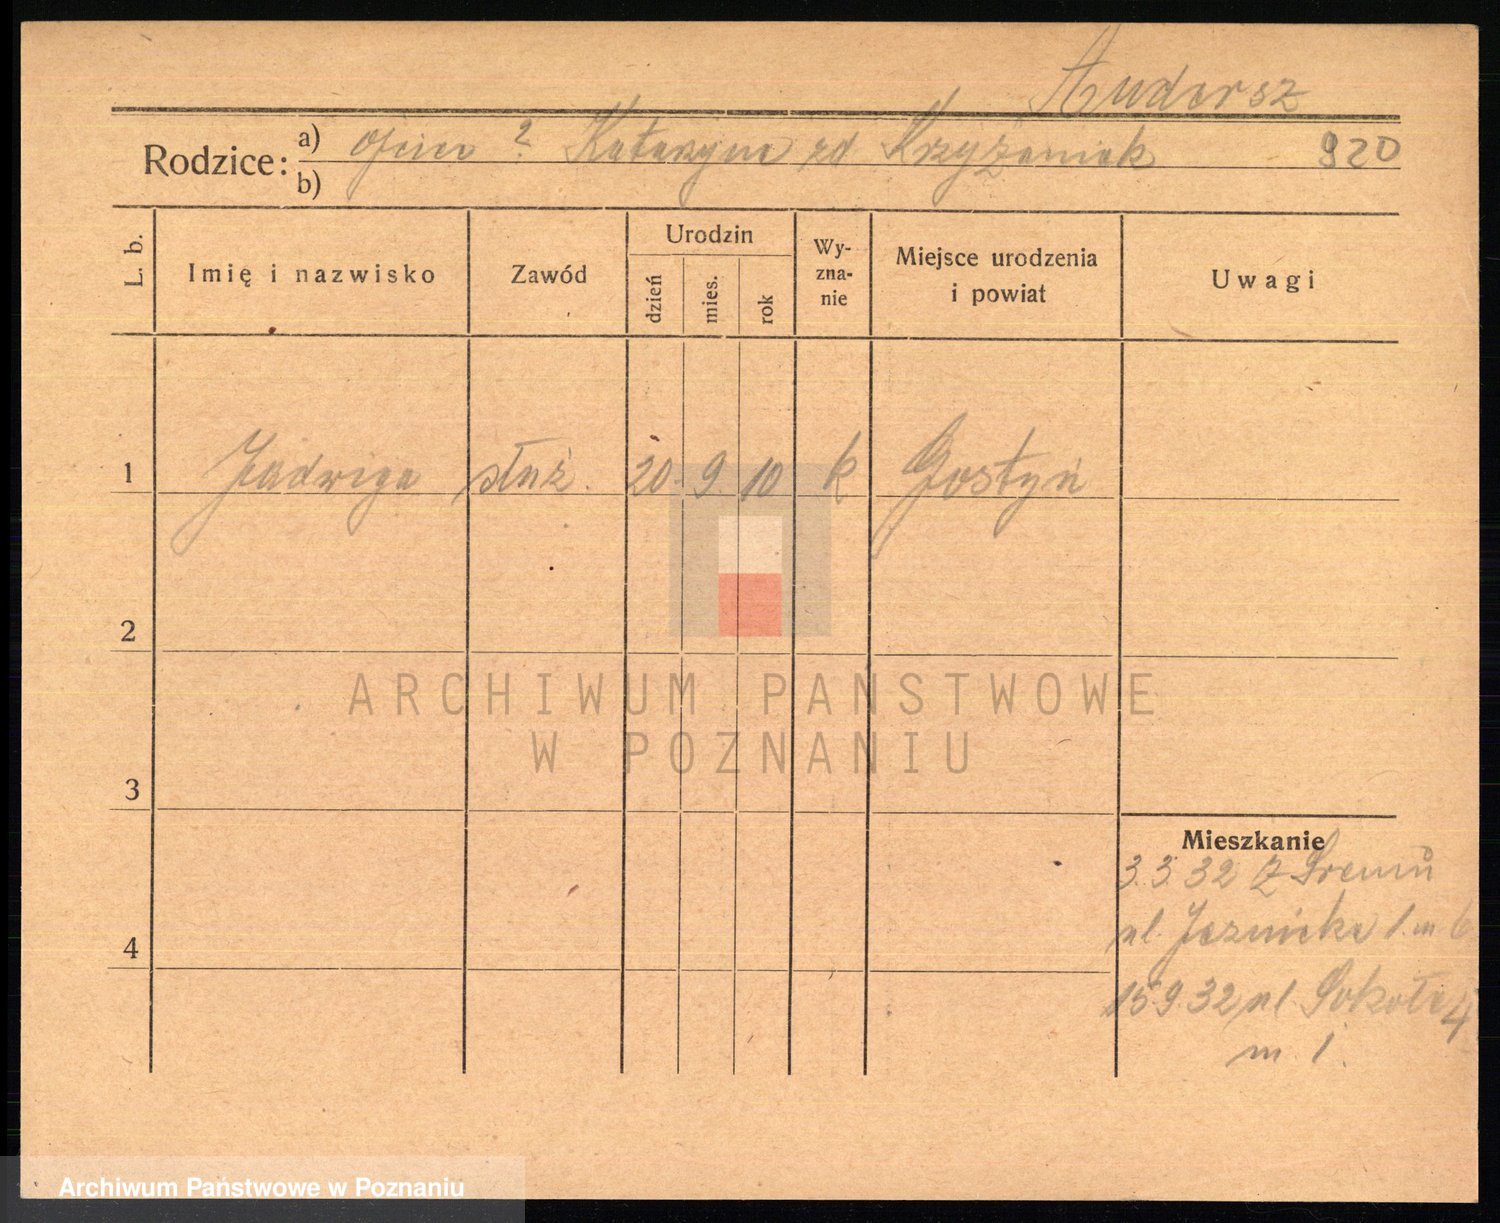 Andersz
Rodzice: a) Ojciec ? Katarzyna zd Krzyżaniak 920
b)
L. b. Imię i nazwisko Zawód Urodzin dzień mies. rok Wy-zna-nie Miejsce urodzenia i powiat Uwagi
1 Jadwiga służ. 20. 9. 10 k Gostyń
2
ARCHIWUM PAŃSTWOWE
W POZNANIU
3
Mieszkanie
3.3.32 z Śremu
ul. 1. m 6
4
15.9.32 ul. Sokoła 4
m. 1.
Archiwum Państwowe w Poznaniu